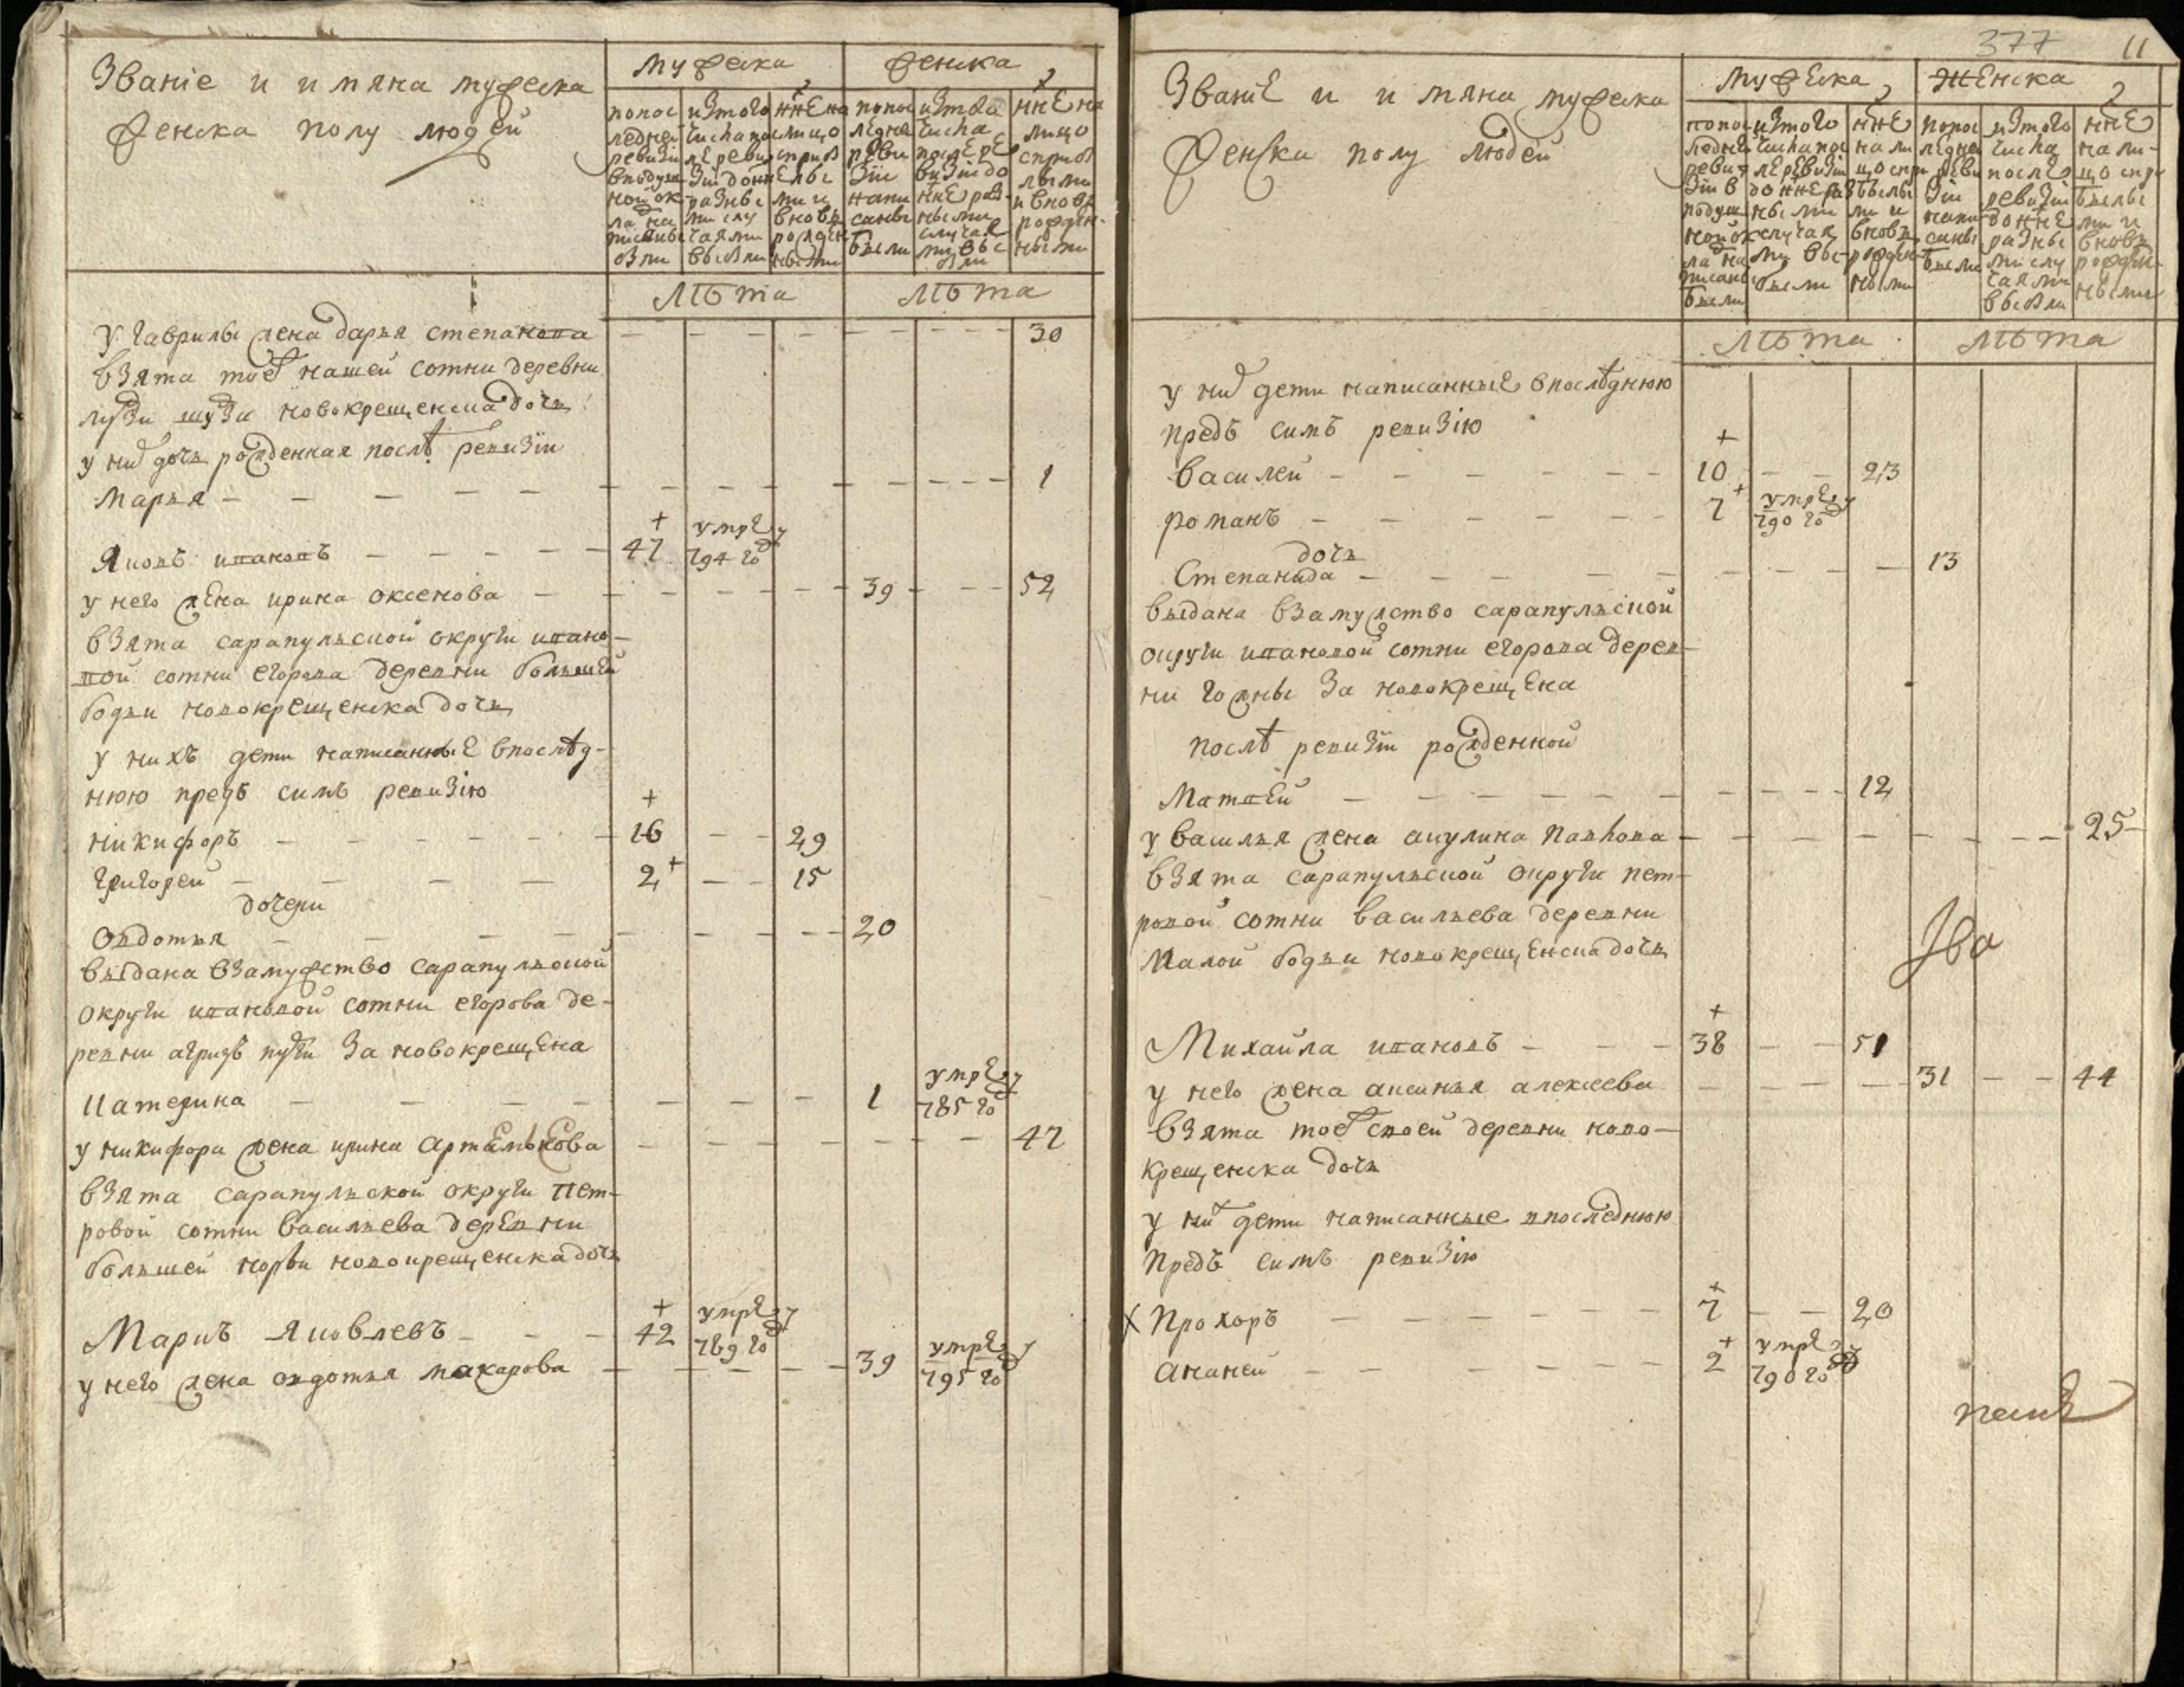 Званіе и имяна мужеска
женска полу людей
мужеска
женска
попос
ледней
ревизіи
вподуш
ной ок
ла на
писаны
были
изтого
числа пос
ле ревиз
зіи до нне
разны
ми слу
чаями
выбыли
нне на
лицо
сприб
лы
ми и
вновь
рожден
ными
попос
ледне
реви
зіи
напи
саны
были
изтого
числа
после ре
визіи до
нне раз
ными
случая
ми вы
были
нне на
лицо
сприб
лыми
и вновь
рожден
ными
лѣта
лѣта
у гаврилы жена дарья степанова — — — — — — 30
взята тоеж нашей сотни деревни
лузи шузи новокрещенска дочь
у них дочь рожденная послѣ ревизіи
марья — — — — — — 1
Яковъ ивановъ — — — 47 умре в 794 год
у него жена ирина оксенова — — — 39 — — 52
взята сарапульской округи ивано-
вой сотни егорова деревни большей
бодьи новокрещенска дочь
у нихъ дети написанные впослѣд-
нюю предъ симъ ревизію
никифоръ — — — 16 — — 29
григорей — — — 2 — — 15
дочери
овдотья — — — 20
выдана взамужство сарапульской
округи ивановой сотни егорова де-
ревни агрызь пуги за новокрещена
катерина — — — 1 умре в 785 год
у никифора жена ирина артемьева — — — 47
взята сарапульской округи пет-
ровой сотни васильева деревни
большей норьи новокрещенска дочь
Маркъ яковлевъ — — — 42 умре в 789 год
у него жена овдотья макарова — — — 39 умре в 795 год
377 11
Званіе и имяна мужеска
женска полу людей
мужеска
женска
попос
ледней
реви
зіи в
подуш
ной ок
ла на
писаны
были
изтого
числа пос
ле ревизіи
до нне раз
ными
случая
ми вы
были
нне
на ли
цо спри
былы
ми и
вновь
рожден
ными
попос
ледне
реви
зіи
напи
саны
были
изтого
числа
после
ревизіи
до нне
разны
ми слу
чаями
выбыли
нне
на ли-
цо спри
былы
ми и
вновь
рожден
ными
лѣта
лѣта
у них дети написанные впослѣднюю
предъ симъ ревизію
василей — — — 10 — — 23
романъ — — — 7 умре в 790 год
дочь
Степанида — — — 13
выдана взамужство сарапульской
округи ивановой сотни егорова дерев-
ни гожны за новокрещена
послѣ ревизіи рожденной
Матвей — — — 12
у василья жена акулина павлова — — — 25
взята сарапульской округи пет-
ровой сотни васильева деревни
малой бодьи новокрещенска дочь
Михайла ивановъ — — — 38 — — 51
у него жена аксинья алексеева — — — 31 — — 44
взята тоеж своей деревни ново-
крещенска дочь
у них дети написанные впоследнюю
предъ симъ ревизію
Прохоръ — — — 7 — — 20
ананей — — — 2 умре в 790 год